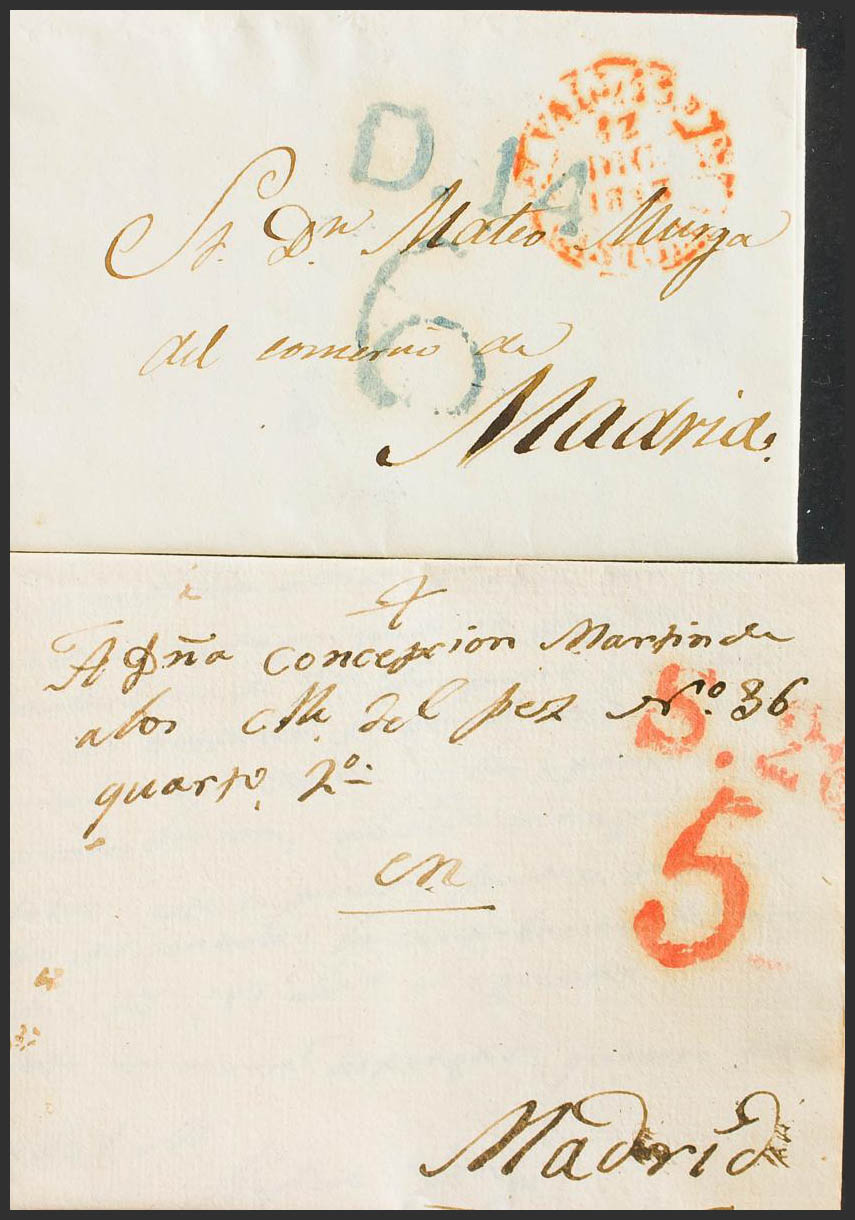 D. 14
12
DIC
Sr. Dn. Mateo Murga
6
del comercio de
Madrid.
A Dña Concepcion Martin de
alos Clle. del pez Nº. 36
quarto, 2º.
S. 2
5
en
Madrid